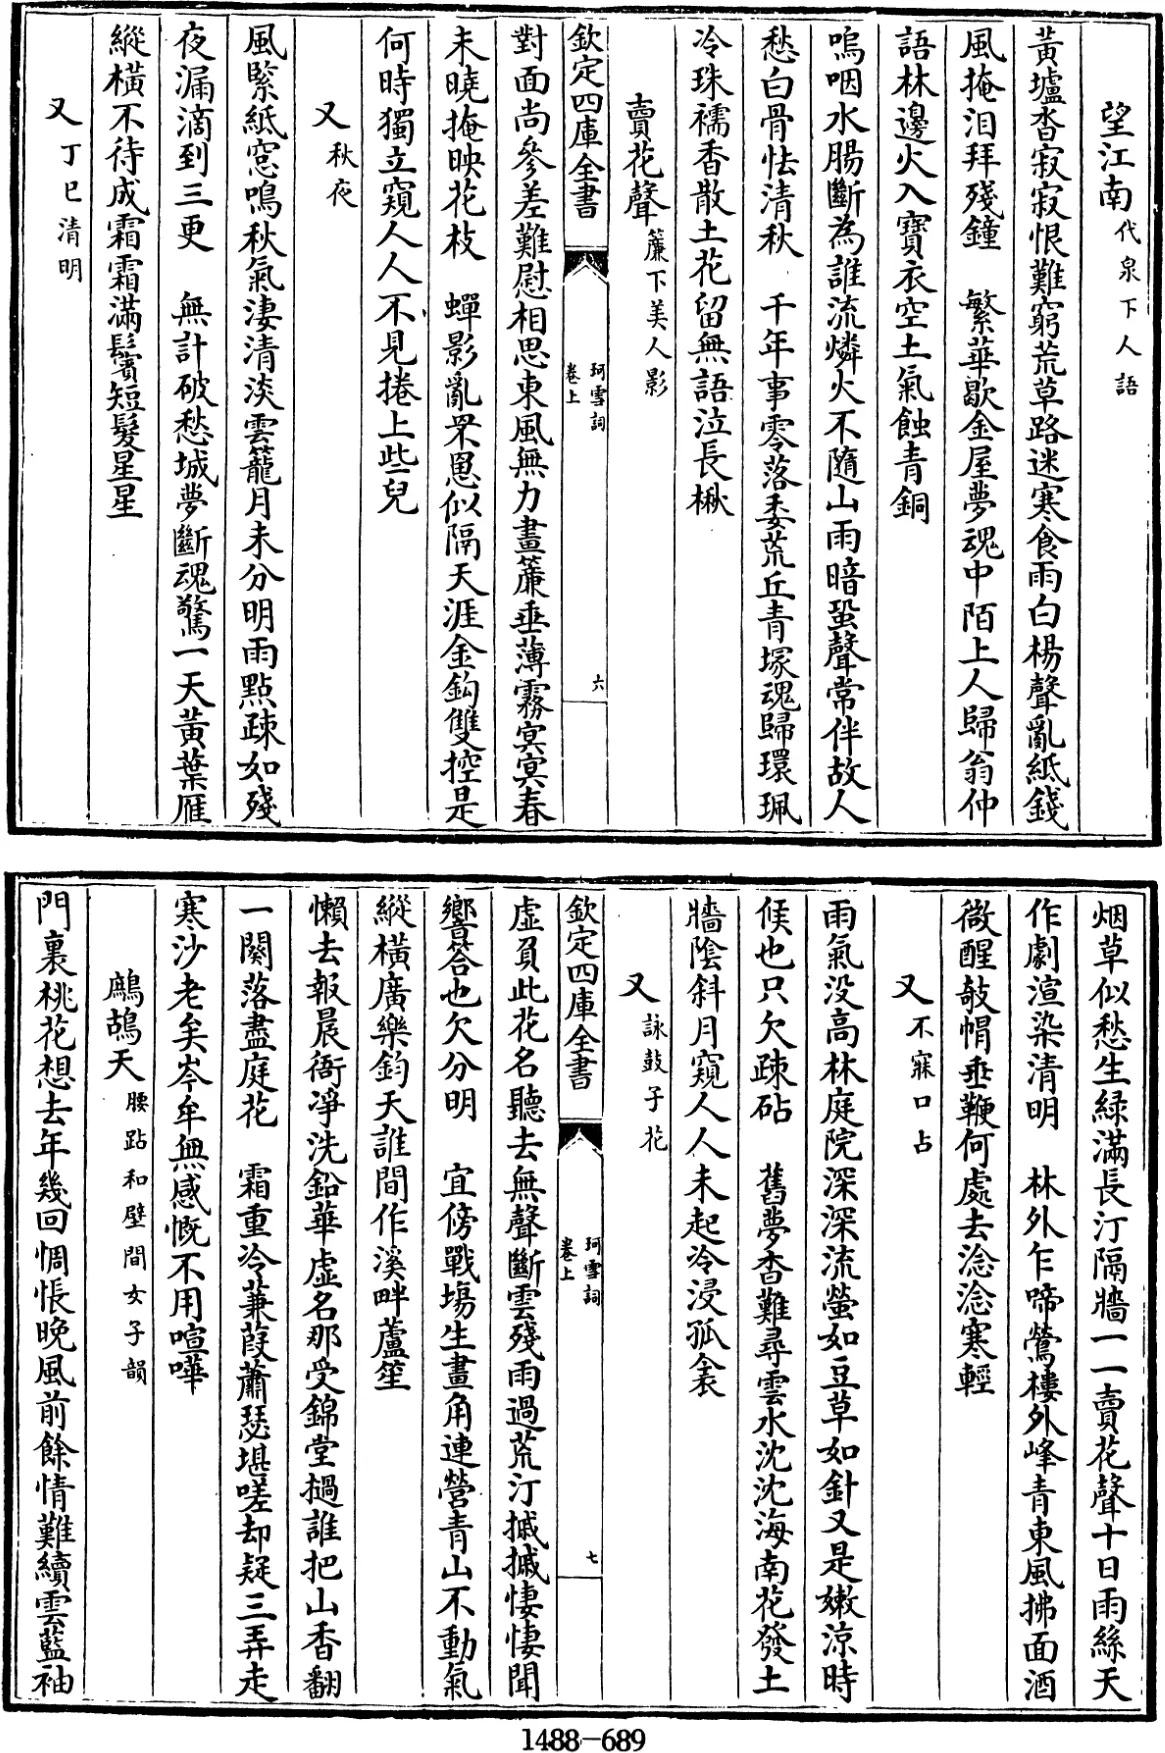 望江南代泉下人語
黃壚杳寂寂恨難窮荒草路迷寒食雨白楊聲亂紙錢
風掩泪拜殘鐘　繁華歇金屋夢魂中陌上人歸翁仲
語林邊火入寶衣空土氣蝕青銅
嗚咽水腸斷為誰流燐火不隨山雨暗蛩聲常伴故人
愁白骨怯清秋　千年事零落委荒丘青塚魂歸環珮
冷珠襦香散土花留無語泣長楸
賣花聲簾下美人影
欽定四庫全書
珂雪詞
卷上
六
對面尚參差難慰相思東風無力畫簾垂薄霧冥冥春
未曉掩映花枝　蟬影亂罘罳似隔天涯金鈎雙控是
何時獨立窺人人不見捲上些兒
又秋夜
風緊紙窓鳴秋氣淒清淡雲籠月未分明雨點疎如殘
夜漏滴到三更　無計破愁城夢斷魂驚一天黃葉雁
縱橫不待成霜霜滿鬢短髮星星
又丁巳清明
烟草似愁生緑滿長汀隔牆一一賣花聲十日雨絲天
作劇渲染清明　林外乍啼鶯樓外峰青東風拂面酒
微醒敧帽垂鞭何處去淰淰寒輕
又不寐口占
雨氣没高林庭院深深流螢如豆草如針又是嫩涼時
候也只欠疎砧　舊夢杳難尋雲水沈沈海南花發土
牆陰斜月窺人人未起冷浸孤衾
又詠鼓子花
欽定四庫全書
珂雪詞
卷上
七
虛負此花名聽去無聲斷雲殘雨過荒汀摵摵悽悽聞
響答也欠分明　宜傍戰場生畫角連營青山不動氣
縱橫廣樂鈞天誰間作溪畔蘆笙
懶去報晨衙淨洗鉛華虛名那受錦堂撾誰把山香翻
一闋落盡庭花　霜重冷蒹葭蕭瑟堪嗟却疑三弄走
寒沙老矣岑牟無感慨不用喧嘩
鷓鴣天腰跕和壁間女子韻
門裏桃花想去年幾回惆悵晚風前餘情難續雲藍袖
1488—689